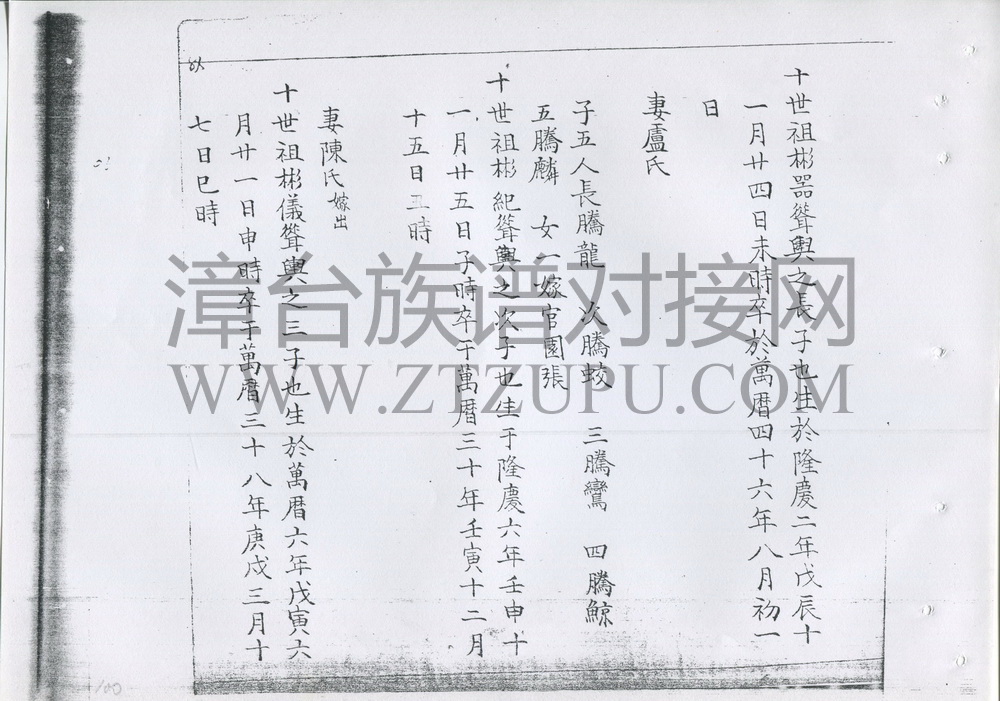 十世祖彬器聳輿之長子也生於隆慶二年戊辰十
一月廿四日未時卒於萬曆四十六年八月初一
日
妻盧氏
子五人長騰龍 次騰蛟 三騰鸞 四騰鯨
五騰麟 女一嫁官園張
十世祖彬紀聳輿之次子也生于隆慶六年壬申十
一月廿五日子時卒于萬曆三十年壬寅十二月
十五日丑時
妻陳氏嫁出
十世祖彬儀聳輿之三子也生於萬曆六年戊寅六
月廿一日申時卒于萬曆三十八年庚戌三月十
七日巳時
漳台族谱对接网
WWW.ZTZUPU.COM
100